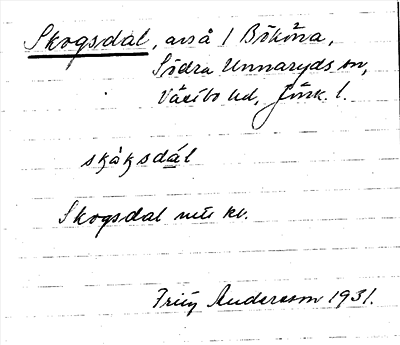 Skogsdal, avså 1 Bököna,
Södra Unnaryds sn,
Västbo hd, Jönk. l.
skåksdál
Skogsdal mtr kv.
Frity Andersson 1931.